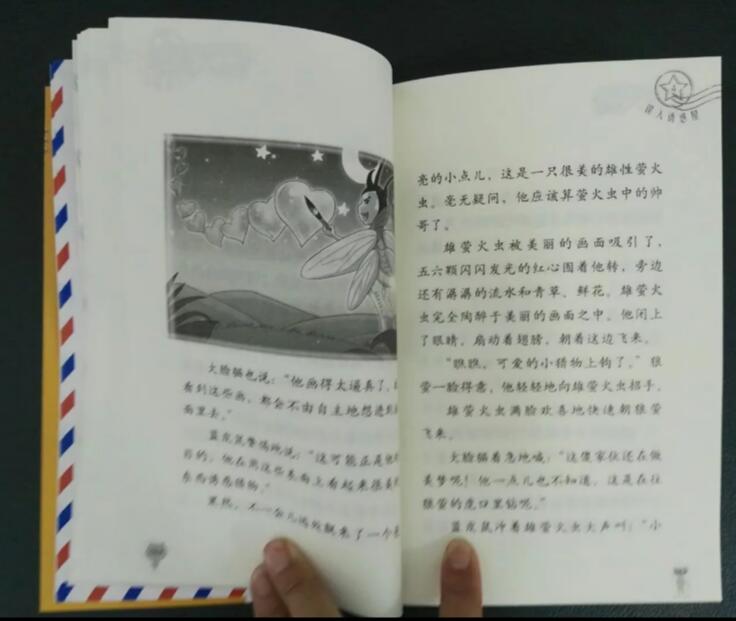 大脸猫也说：“他画得太逼真了，
看到这些画，都会不由自主地想进到
面里去。”
蓝皮鼠警惕地说：“这可能正是他
目的，他在用这些表面上看起来很美
东西诱惑猎物。”
果然，不一会儿远处飘来了一个
亮的小点儿，这是一只很美的雄性萤火
虫。毫无疑问，他应该算萤火虫中的帅
哥了。
雄萤火虫被美丽的画面吸引了，
五六颗闪闪发光的红心围着他转，旁边
还有潺潺的流水和青草、鲜花。雄萤火
虫完全陶醉于美丽的画面之中。他闭上
了眼睛，扇动着翅膀，朝着这边飞来。
“瞧瞧，可爱的小猎物上钩了。”狼
萤一脸得意，他轻轻地向雄萤火虫招手。
雄萤火虫满脸欢喜地快速朝狼萤
飞来。
大脸猫着急地喊：“这傻家伙还在做
美梦呢！他一点儿也不知道，这是在往
狼萤的虎口里钻呢。”
蓝皮鼠冲着雄萤火虫大声叫：“小